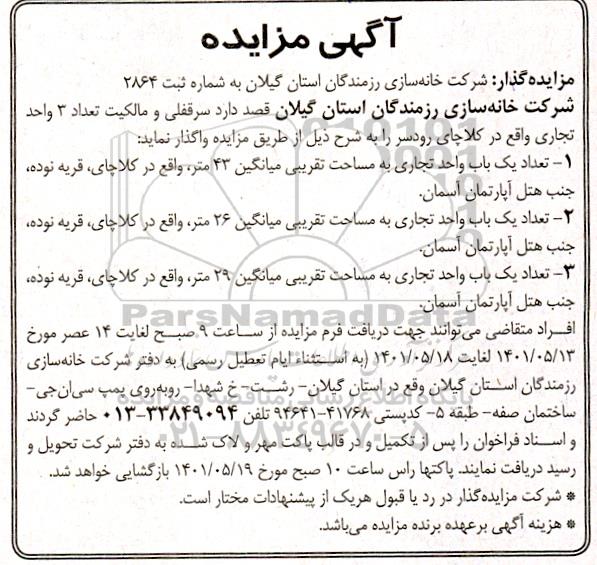 آگهی مزایده
مزایده‌گذار: شرکت خانه‌سازی رزمندگان استان گیلان به شماره ثبت ۲۸۶۴
شرکت خانه‌سازی رزمندگان استان گیلان قصد دارد سرقفلی و مالکیت تعداد ۳ واحد
تجاری واقع در کلاچای رودسر را به شرح ذیل از طریق مزایده واگذار نماید:
۱- تعداد یک باب واحد تجاری به مساحت تقریبی میانگین ۴۳ متر، واقع در کلاچای، قریه نوده،
جنب هتل آپارتمان آسمان.
۲- تعداد یک باب واحد تجاری به مساحت تقریبی میانگین ۲۶ متر، واقع در کلاچای، قریه نوده،
جنب هتل آپارتمان آسمان.
۳- تعداد یک باب واحد تجاری به مساحت تقریبی میانگین ۲۹ متر، واقع در کلاچای، قریه نوده،
جنب هتل آپارتمان آسمان.
ParsNamadData
افراد متقاضی می‌توانند جهت دریافت فرم مزایده از ساعت ۹ صبح لغایت ۱۴ عصر مورخ
۱۴۰۱/۰۵/۱۳ لغایت ۱۴۰۱/۰۵/۱۸ (به استثناء ایام تعطیل رسمی) به دفتر شرکت خانه‌سازی
رزمندگان استان گیلان وقع در استان گیلان- رشت- خ شهدا- روبه‌روی پمپ سی‌ان‌جی-
ساختمان صفه- طبقه ۵- کدپستی ۴۱۷۶۸-۹۴۶۴۱ تلفن ۳۳۸۴۹۰۹۴-۰۱۳ حاضر گردند
و اسناد فراخوان را پس از تکمیل و در قالب پاکت مهر و لاک شده به دفتر شرکت تحویل و
رسید دریافت نمایند. پاکتها راس ساعت ۱۰ صبح مورخ ۱۴۰۱/۰۵/۱۹ بازگشایی خواهد شد.
* شرکت مزایده‌گذار در رد یا قبول هریک از پیشنهادات مختار است.
* هزینه آگهی برعهده برنده مزایده می‌باشد.